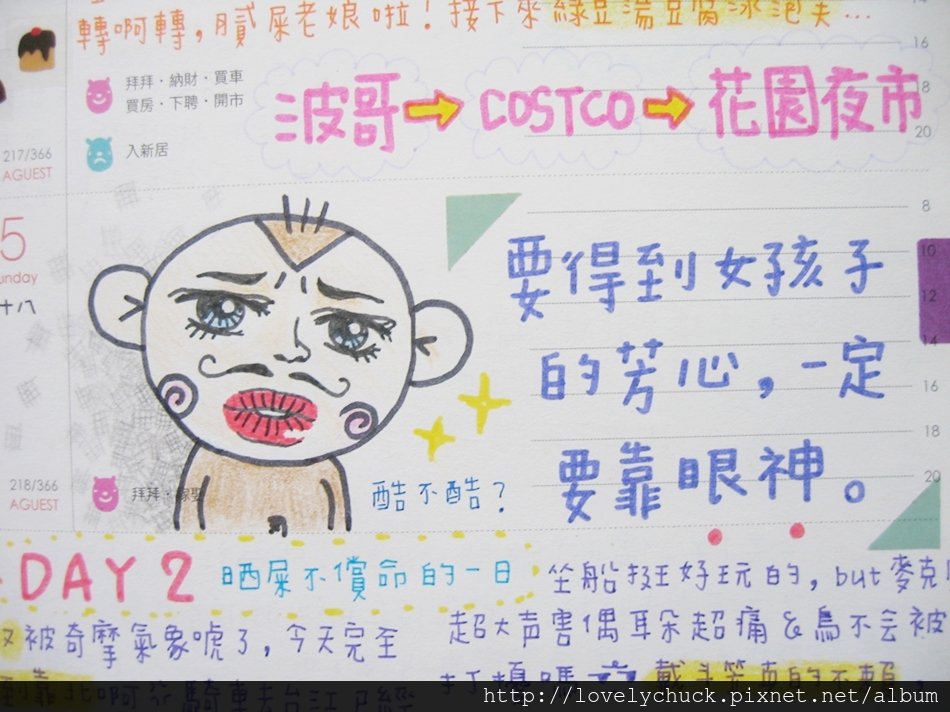 轉啊轉，膩屎老娘啦！接下來綠豆湯豆腐冰泡芙…
16
拜拜・納財・買車
買房・下聘・開市
波哥 → COSTCO → 花園夜市
18
20
入新居
217/366
AGUEST
8
5
unday
十八
要得到女孩子
10
12
14
的芳心，一定
16
18
要靠眼神。
20
218/366
AGUEST
拜拜・嫁娶
酷不酷？
DAY 2
晒屎不償命的一日
坐船挺好玩的，but 麥克
又被奇摩氣象唬了，今天完全
超大声害偶耳朵超痛 & 鳥不会被
打擾嗎
http://lovelychuck.pixnet.net/album